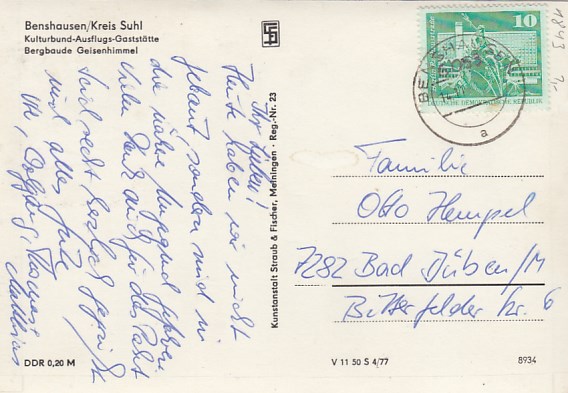 Benshausen/Kreis Suhl
Kulturbund-Ausflugs-Gaststätte
Bergbaude Geisenhimmel
Ihr Lieben!
Heute haben wir nicht
gebaut, sondern sind in
die nähere Umgegend gefahren.
Vielen Dank auch für das Paket
Seid recht herzlich gegrüßt
und alles Gute
Matthias
Kunstanstalt Straub & Fischer, Meiningen · Reg.-Nr. 23
DDR 0,20 M
V 11 50 S 4/77
8934
10
DEUTSCHE DEMOKRATISCHE REPUBLIK
a
1843
Familie
Otto Hempel
7282 Bad Düben/M
Bitterfelder Str. 6